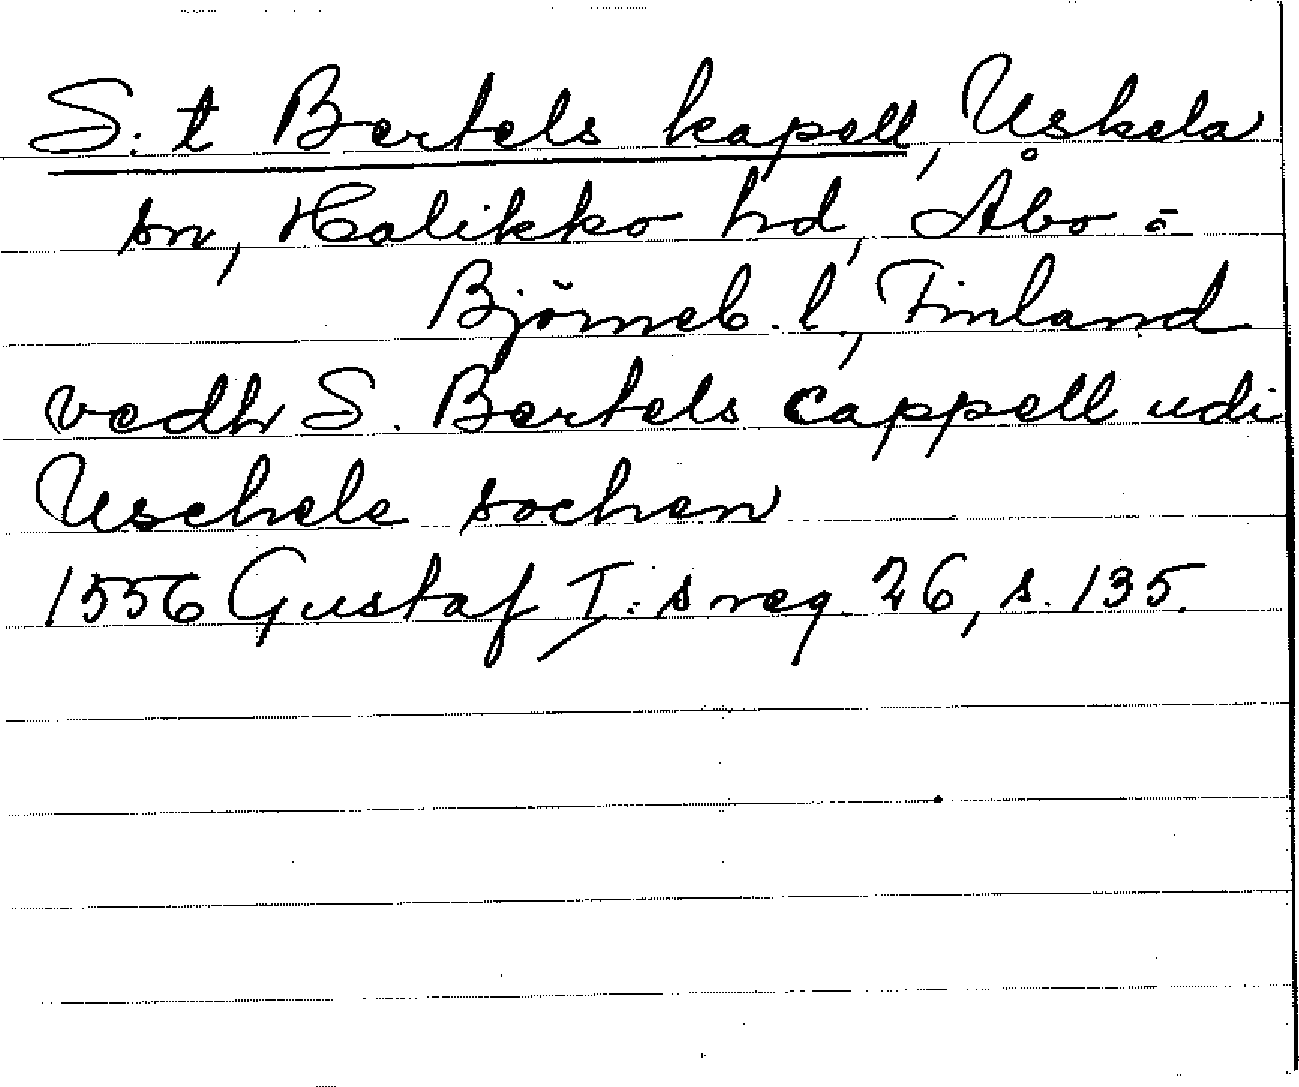 S:t Bertels kapell, Uskela
sn, Halikko hd, Åbo-
Björneb. l., Finland
vedh S. Bertels cappell udi
Uschele sochen
1556 Gustaf I:s reg. 26, s. 135.